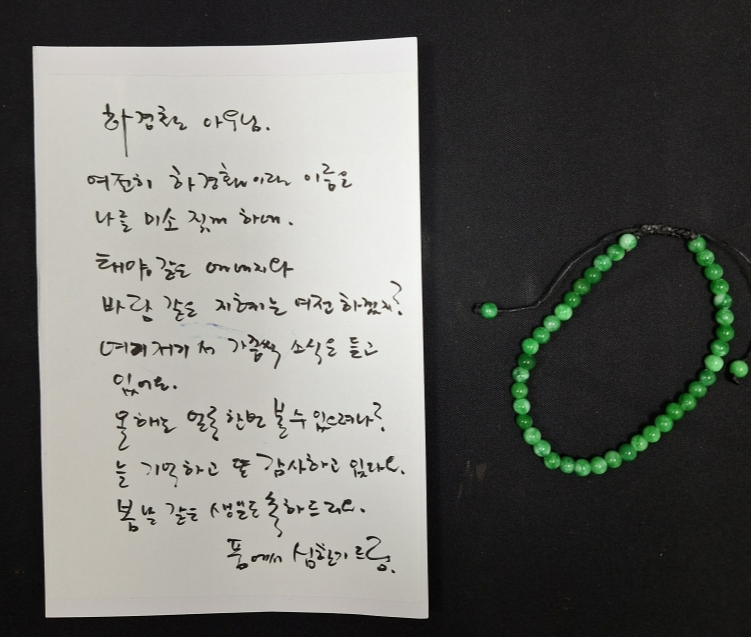 하경화 아우님.
여전히 하경화이란 이름은
나를 미소 짓게 하네.
태양 같은 에너지와
바람 같은 지혜는 여전 하겠지?
여기저기서 가끔씩 소식은 듣고
있어요.
올해는 얼굴 한번 볼 수 있으려나?
늘 기억하고 또 감사하고 있다오.
봄날 같은 생일도 축하드려요.
풍에서